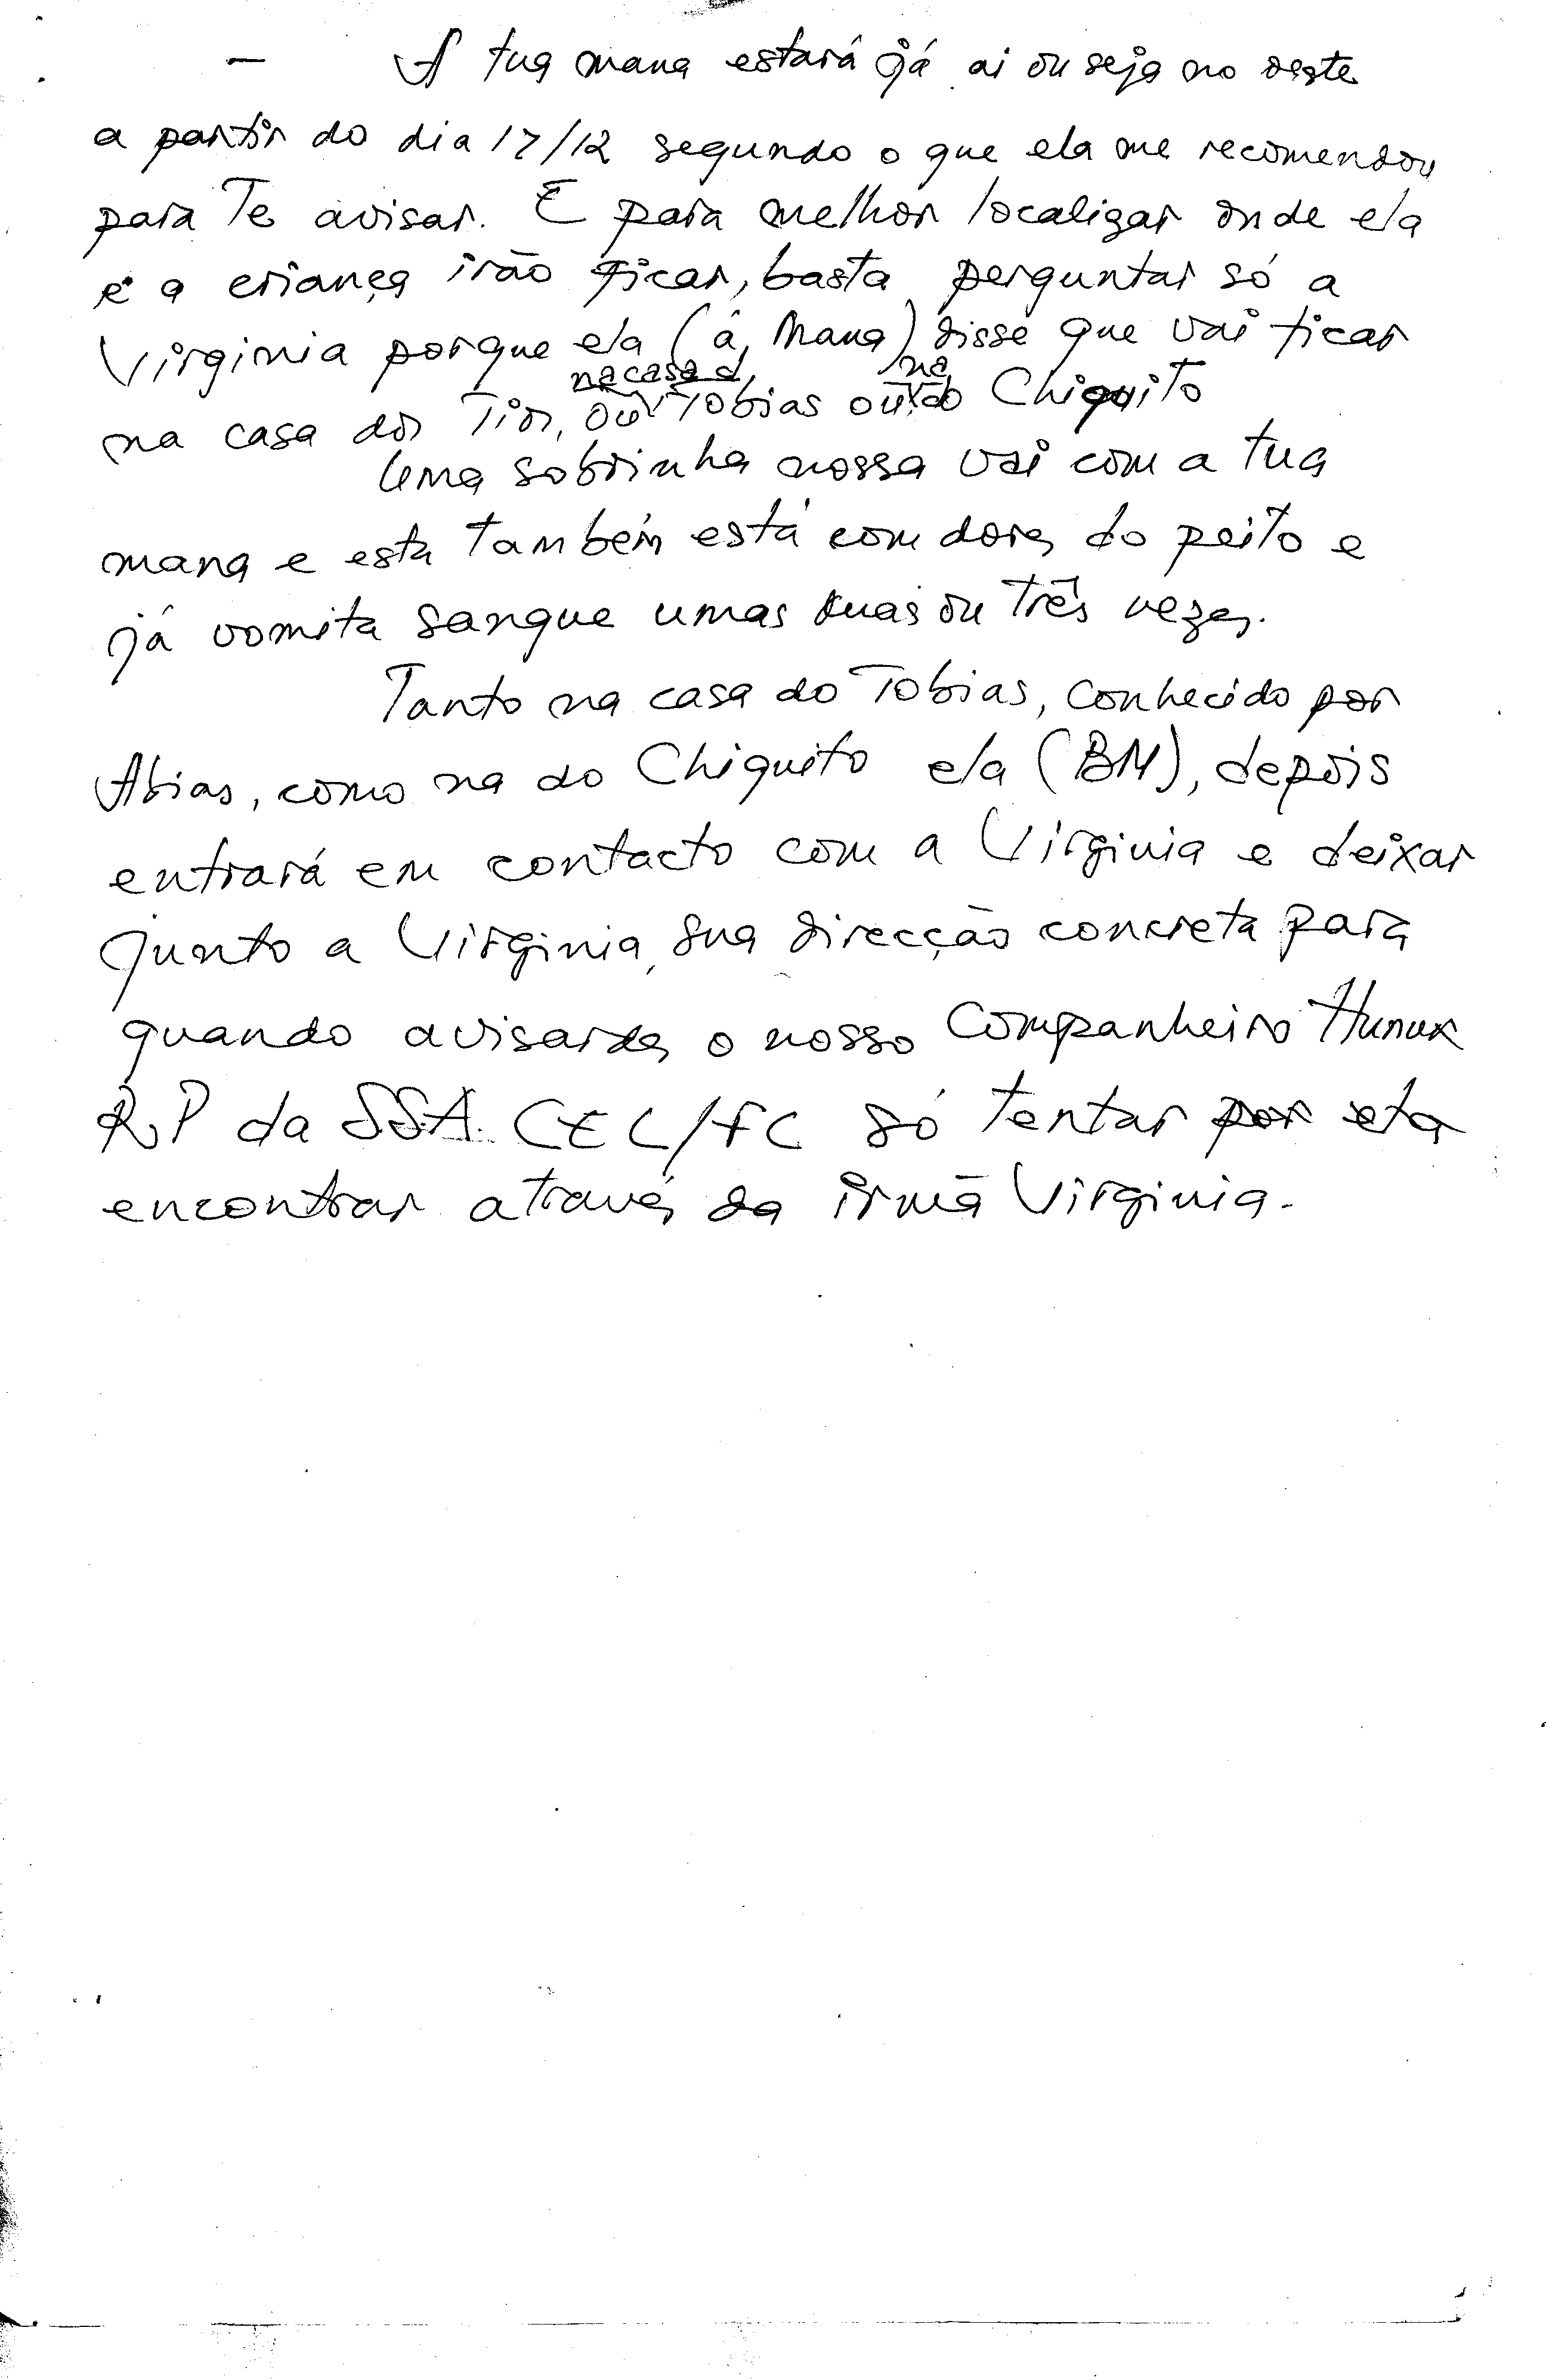 — A tua mana estará já ai ou seja no oeste
a partir do dia 17/12 segundo o que ela me recomendou
para Te avisar. E para melhor localizar onde ela
e a criança irão ficar, basta perguntar só a
Virginia porque ela (a Mana) disse que vai ficar
na casa d na
na casa dos Tios, ou Tobias ou do Chiquito
Uma sobrinha nossa vai com a tua
mana e esta também está com dores do peito e
já vomita sangue umas duas ou Três vezes.
Tanto na casa do Tobias, conhecido por
Abias, como na do Chiquito ela (BM), depois
entrará em contacto com a Virginia e deixar
junto a Virginia, sua direcção concreta para
quando avisardes o nosso Companheiro
R.P da SSA. CEC/FC só Tentar por
encontrar através da irmã Virginia.